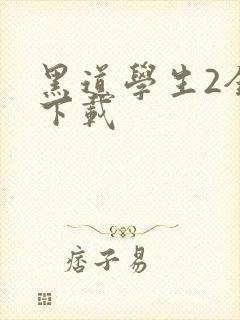 黑道學生2全
下載
痞子易